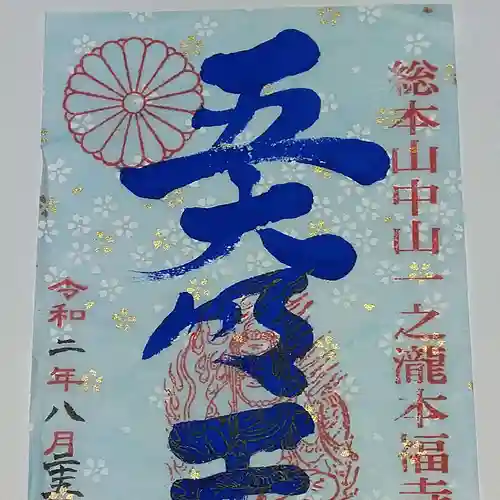 総本山中山一之瀧本福寺
五大明王
令和二年八月